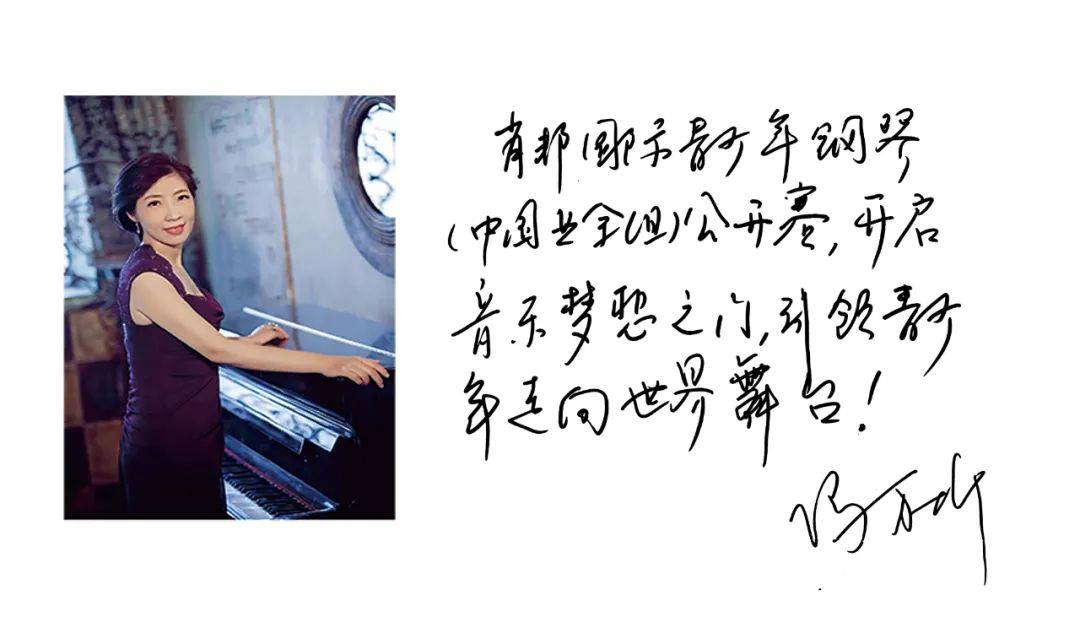 肖邦国际青少年钢琴
(中国业余组)公开赛,开启
音乐梦想之门,引领青少
年走向世界舞台!
冯